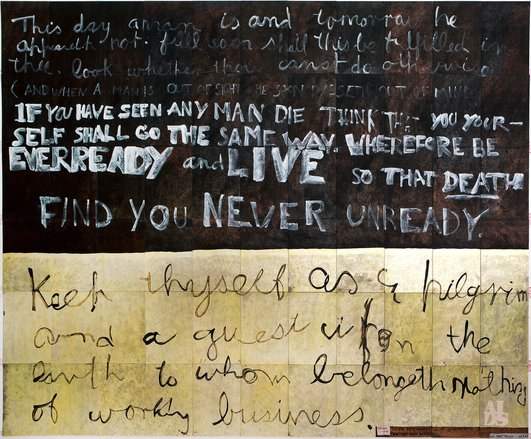 This day a man is and tomorrow he
appeareth not. full soon shall this be fulfilled in
thee. look whether thou canst do otherwise
(AND WHEN A MAN IS OUT OF SIGHT HE SOON PASSETH OUT OF MIND
IF YOU HAVE SEEN ANY MAN DIE THINK THAT YOU YOUR–
SELF SHALL GO THE SAME WAY. WHEREFORE BE
EVERREADY and LIVE SO THAT DEATH
FIND YOU NEVER UNREADY.
Keep thyself as a pilgrim
and a guest upon the
earth to whom belongeth nothing
of worldly business.